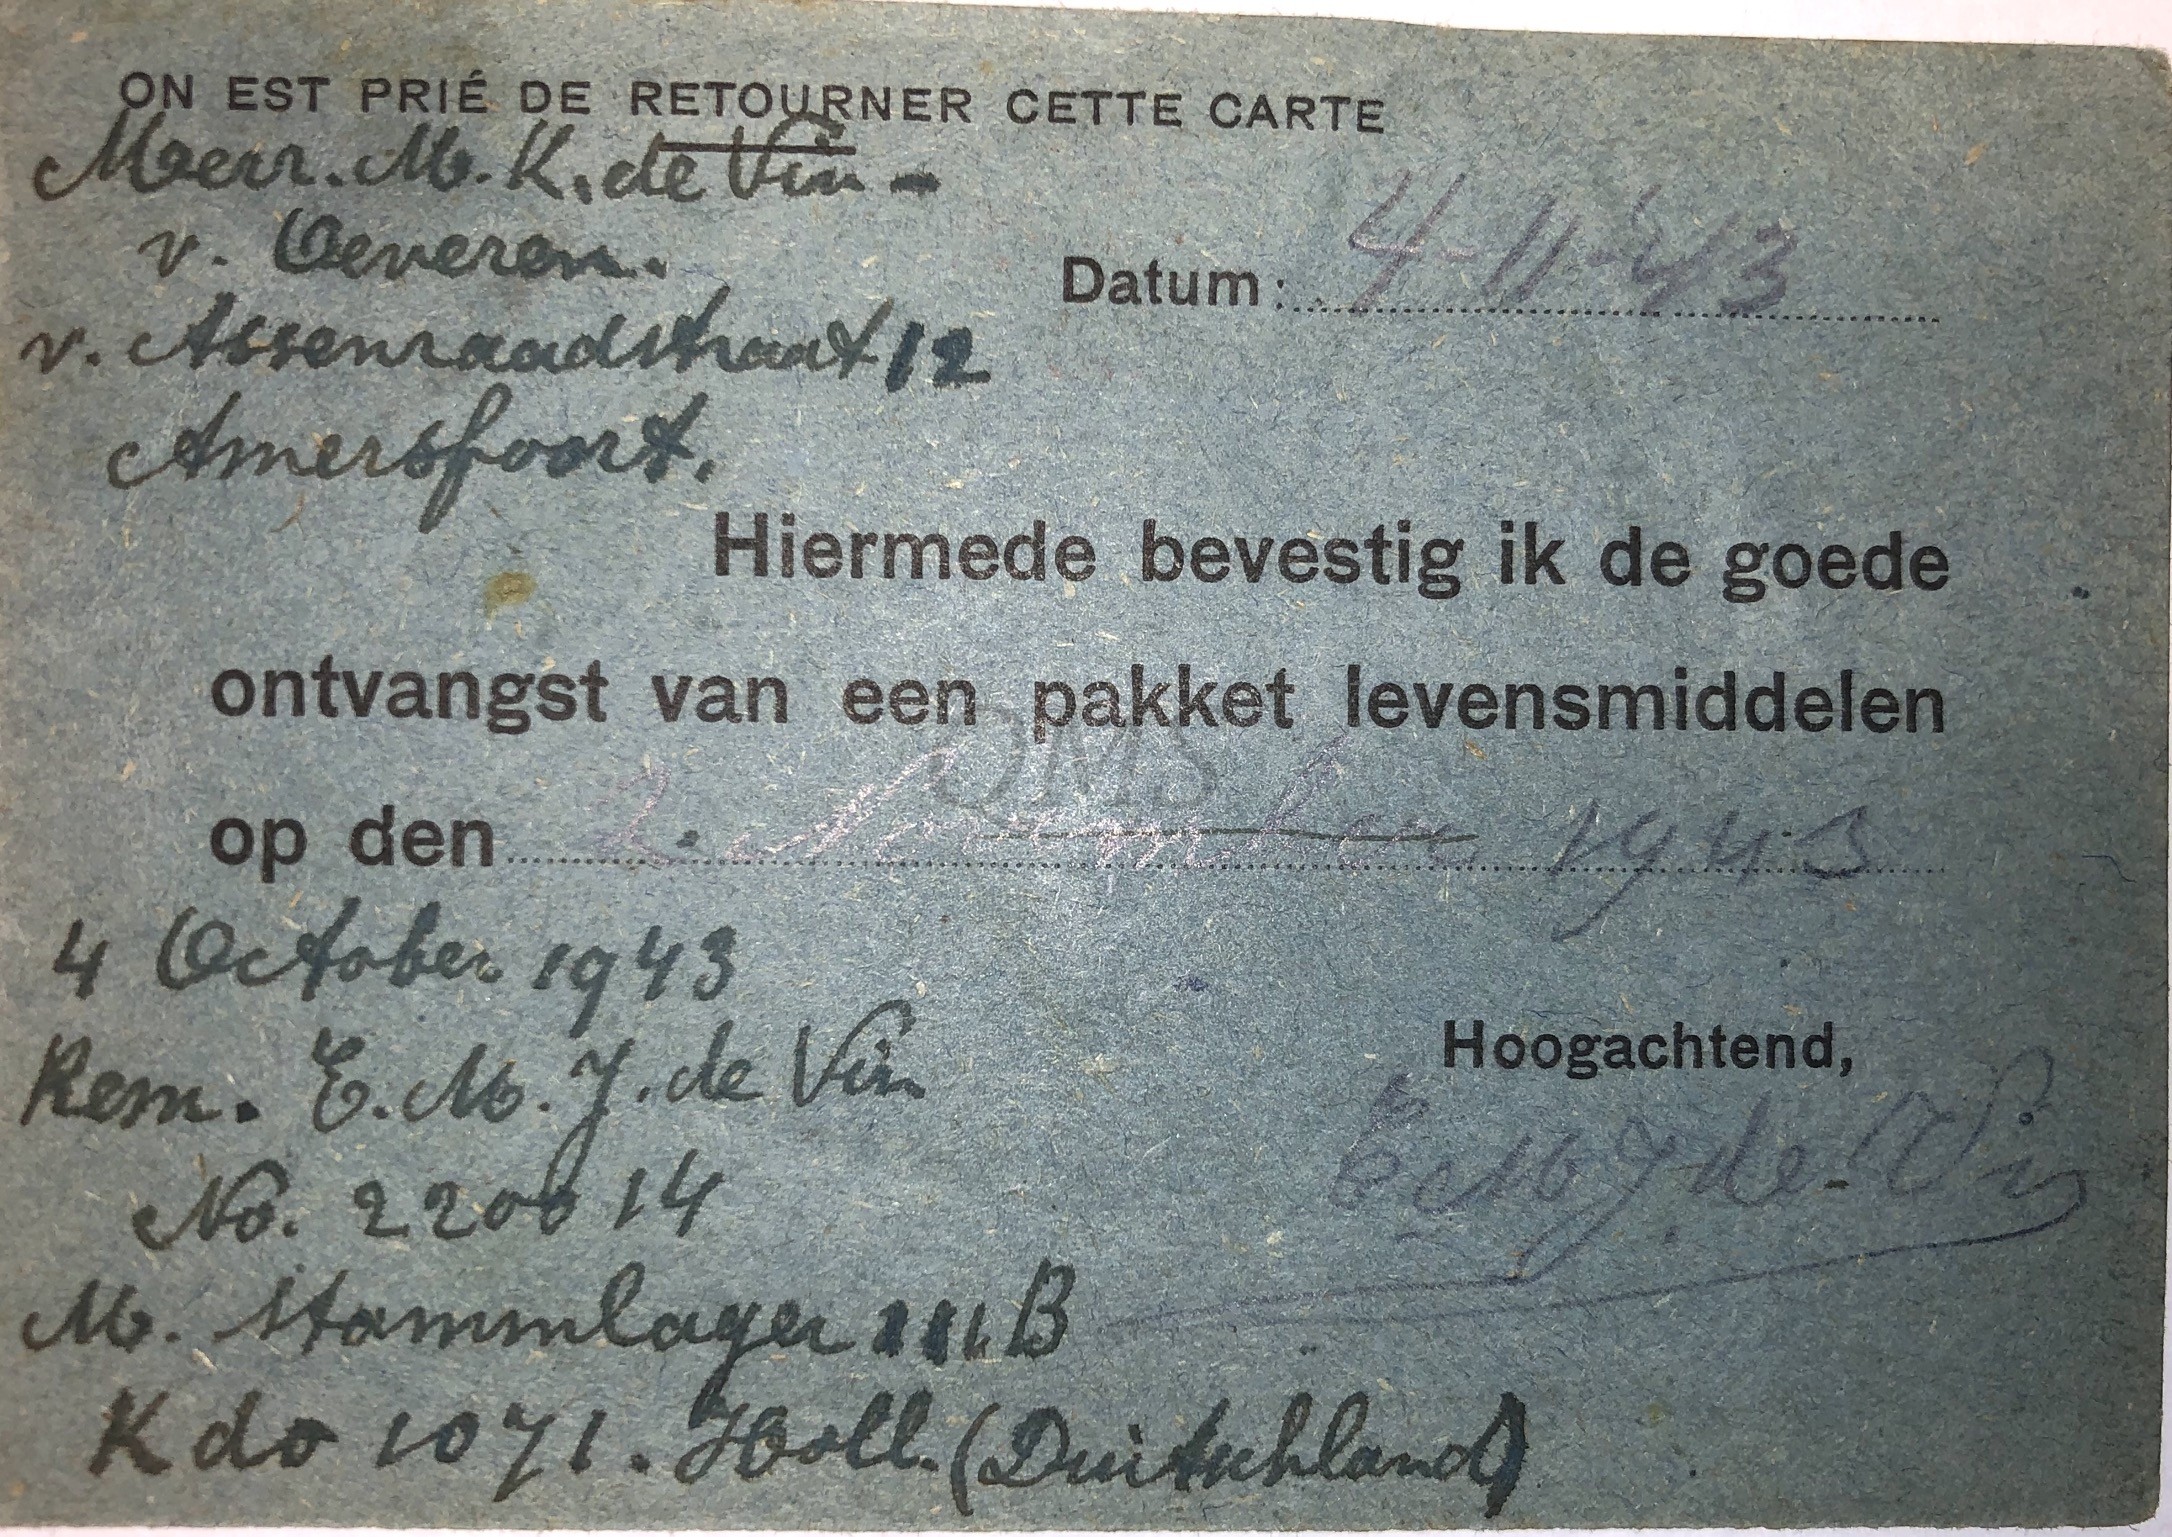 ON EST PRIÉ DE RETOURNER CETTE CARTE
Mevr. M. K. de Vin -
v. Oeveren.
v. Assenraadstraat 12
Amersfoort.
Datum: 4-11-'43
Hiermede bevestig ik de goede
ontvangst van een pakket levensmiddelen
QMS
op den 2 November 1943
4 October 1943
Rem. E. M. J. de Vin
No. 220014
M. Stammlager III B
Kdo 1071. Holl. (Duitschland)
Hoogachtend,
E M J de Vin